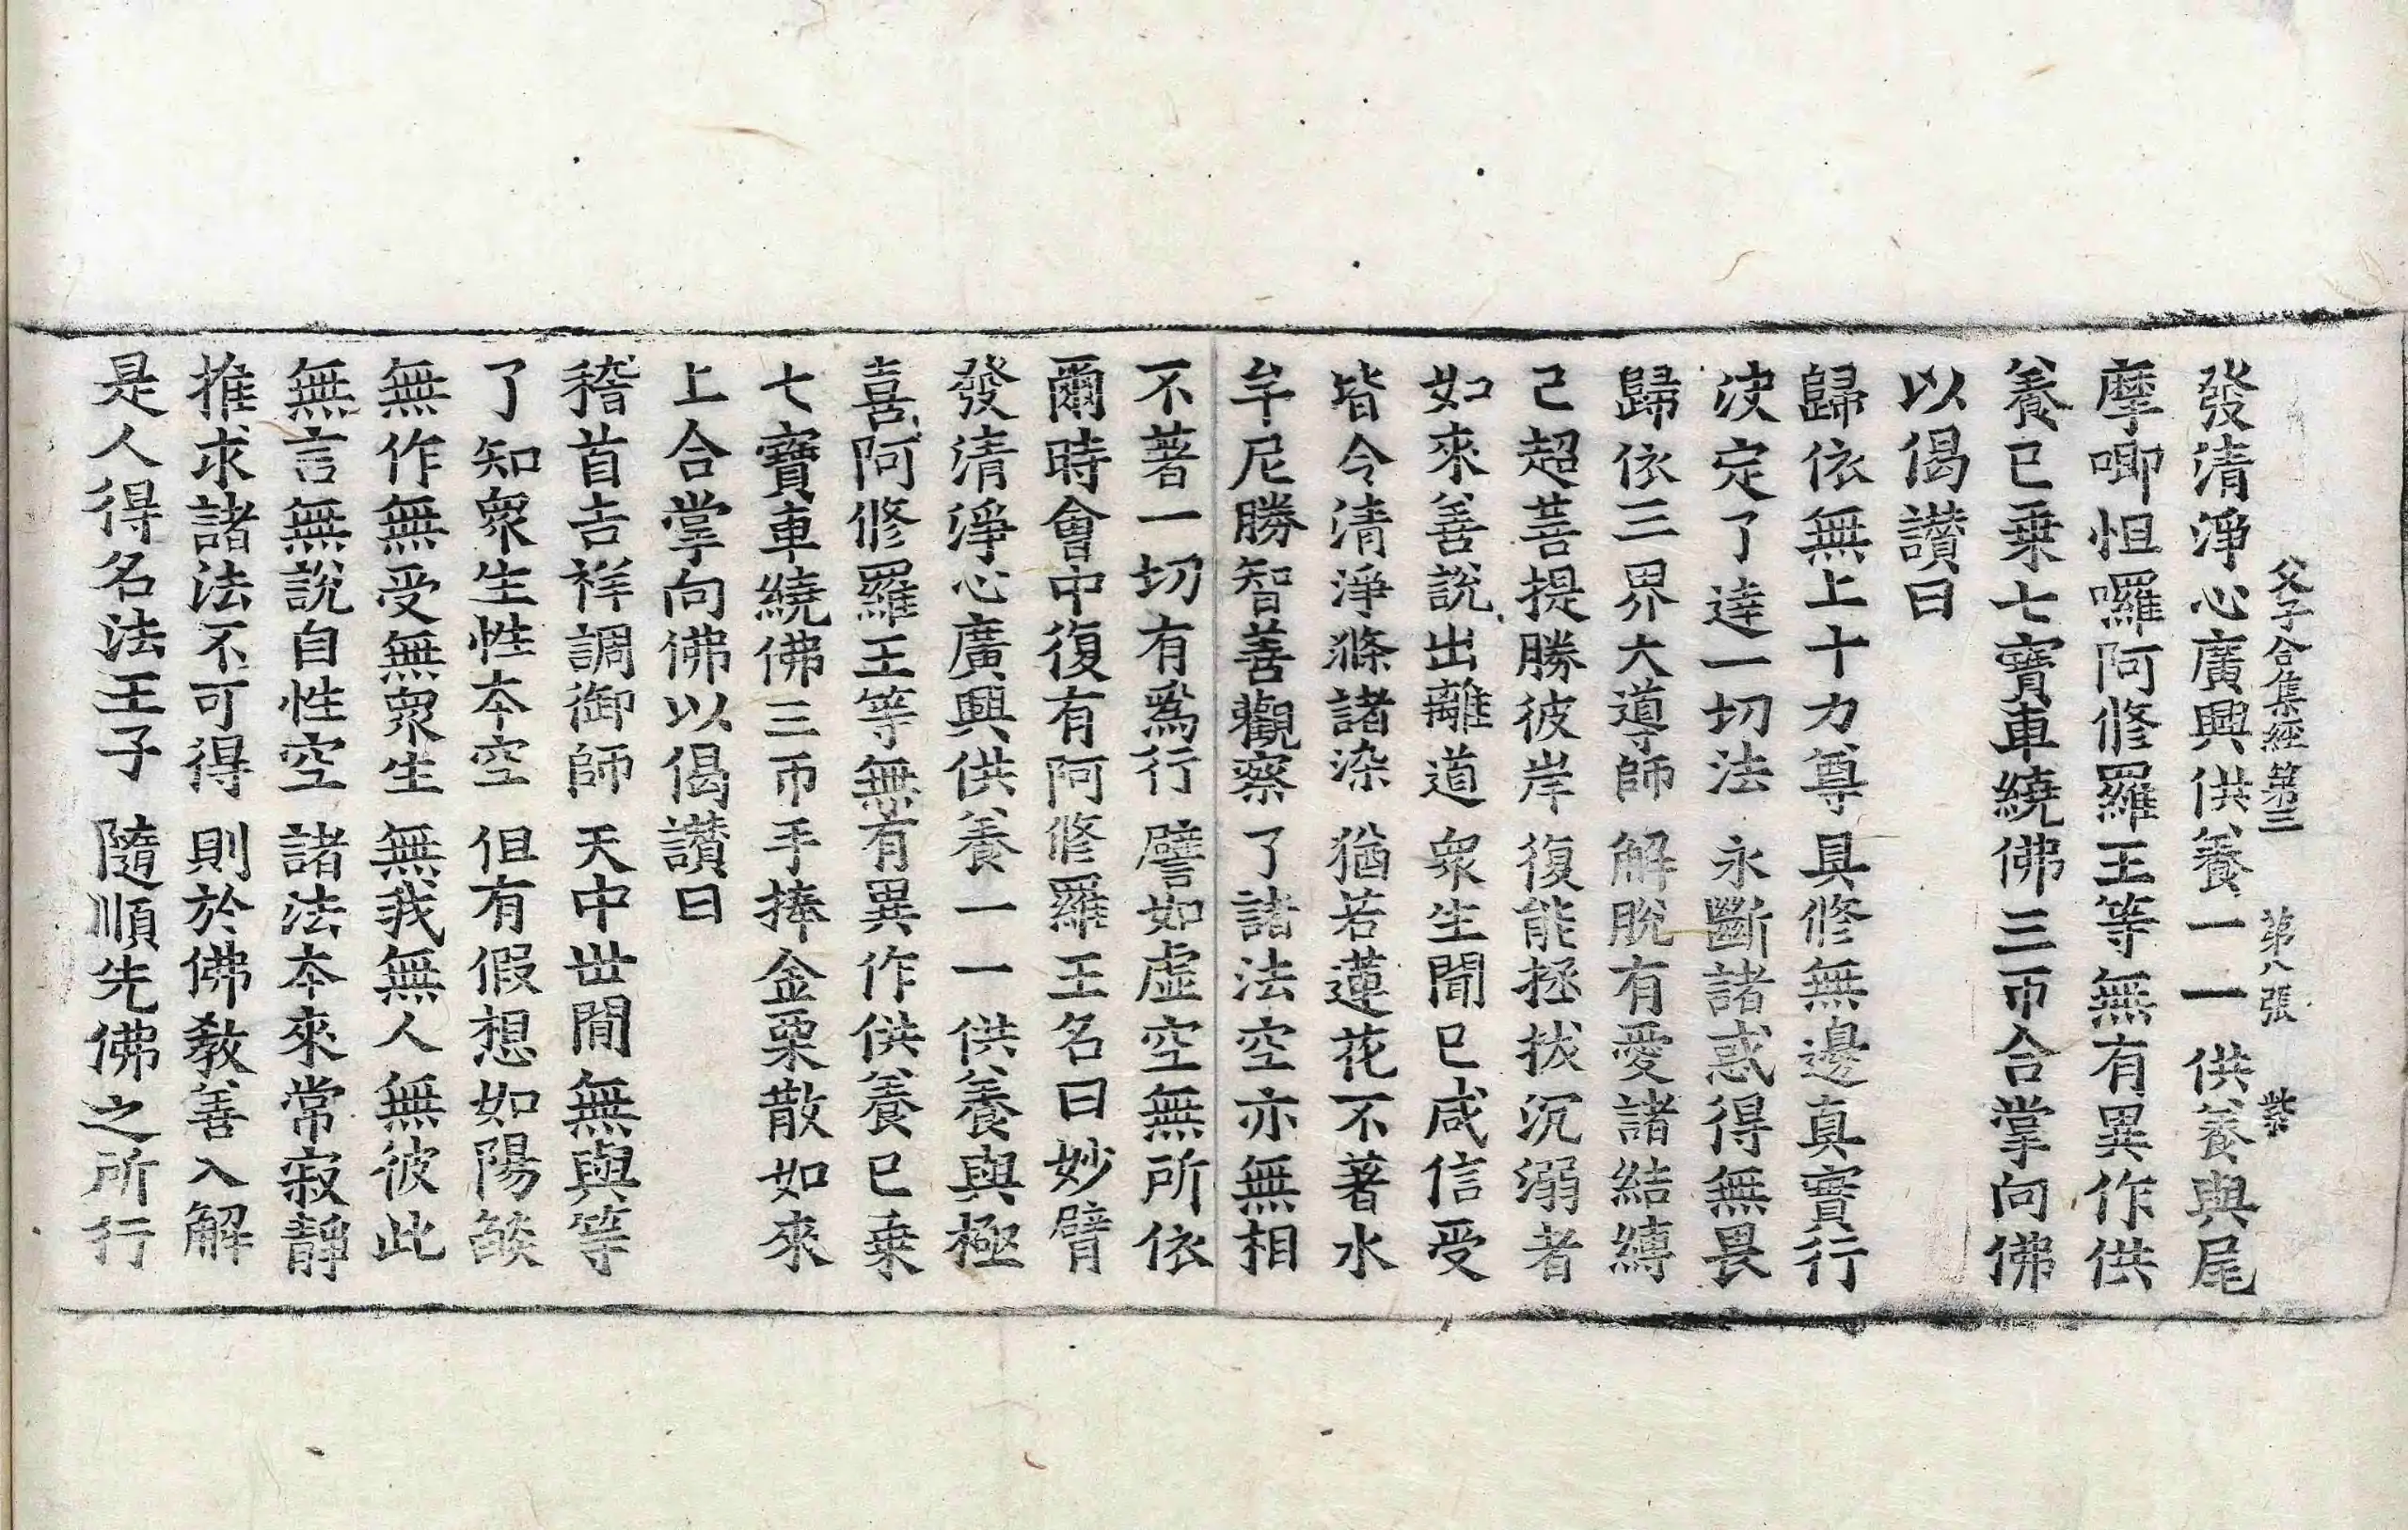 父子合集經第三 第八張 紫
發清淨心廣興供養一一供養與尾
摩唧怛囉阿修羅王等無有異作供
養已乗七寶車繞佛三帀合掌向佛
以偈讃曰
歸依無上十力尊 具修無邊真實行
决定了達一切法 永斷諸惑得無畏
歸依三界大導師 解脫有愛諸結縛
已超菩提勝彼岸 復能拯拔沉溺者
如來善說出離道 衆生聞已咸信受
皆令清淨滌諸染 猶若蓮花不著水
牟尼勝智善觀察 了諸法空亦無相
不著一切有爲行 譬如虛空無所依
爾時會中復有阿修羅王名曰妙臂
發清淨心廣興供養一一供養與極
喜阿修羅王等無有異作供養已乗
七寶車繞佛三帀手捧金栗散如來
上合掌向佛以偈讃曰
稽首吉祥調御師 天中世間無與等
了知衆生性本空 但有假想如陽燄
無作無受無衆生 無我無人無彼此
無言無說自性空 諸法本來常寂靜
推求諸法不可得 則於佛教善入解
是人得名法王子 隨順先佛之所行